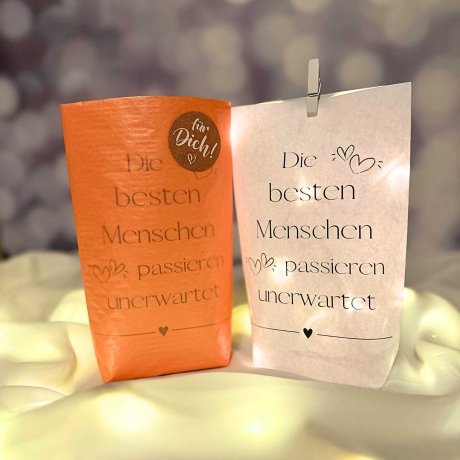 für
Dich!
Die
besten
Menschen
passieren
unerwartet
Die
besten
Menschen
passieren
unerwartet